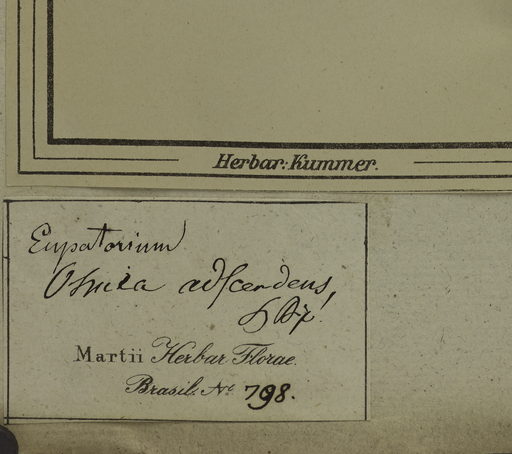 Herbar: Kummer.
Eupatorium
Osmia adscendens,
Martii Herbar. Florae.
Brasil. No 798.